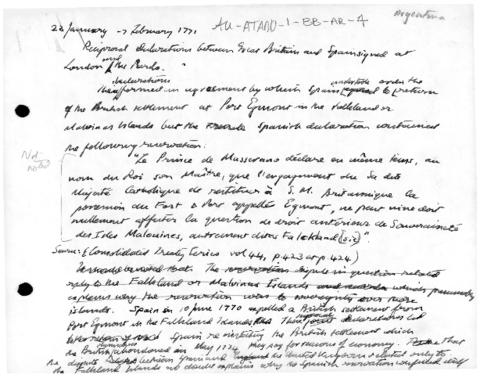 Argentina
22 January - 7 February 1771
AU-ATADD-1-BB-AR-4
Reciprocal declarations between Great Britain and Spain signed at
London and the Pardo.
declarations
The formed an agreement by which Spain undertook under the to return
of the British settlement at Port Egmont in the Falkland or
Malvinas Islands but the Spanish declaration contained
the following reservation:
Not
noted
"Le Prince de Masserano déclare en même tems, au
nom du Roi son Maître, que l'engagement de Sa dite
Majesté Catholique de restituer à S. M. Britannique la
possession du Fort & Port appellé Egmont, ne peut ni ne doit
nullement affecter la question de droit antérieur de Souveraineté
des Isles Malouines, autrement dites Falkland (sic)".
Source: (Consolidated Treaty Series vol 44, p. 423 at p 424)
The reservation in question related
only to the Falkland or Malvinas Islands and presumably
explains why the reservation was to sovereignty over those
islands. Spain on 10 June 1770 expelled a British settlement from
Port Egmont in the Falkland Islands. The declarations led
Spain re instating the British settlement which
the British abandoned in May 1774 for reasons of economy. That
the dispute between Spain and United Kingdom related only to
the Falkland Islands no doubt explains why no Spanish reservation